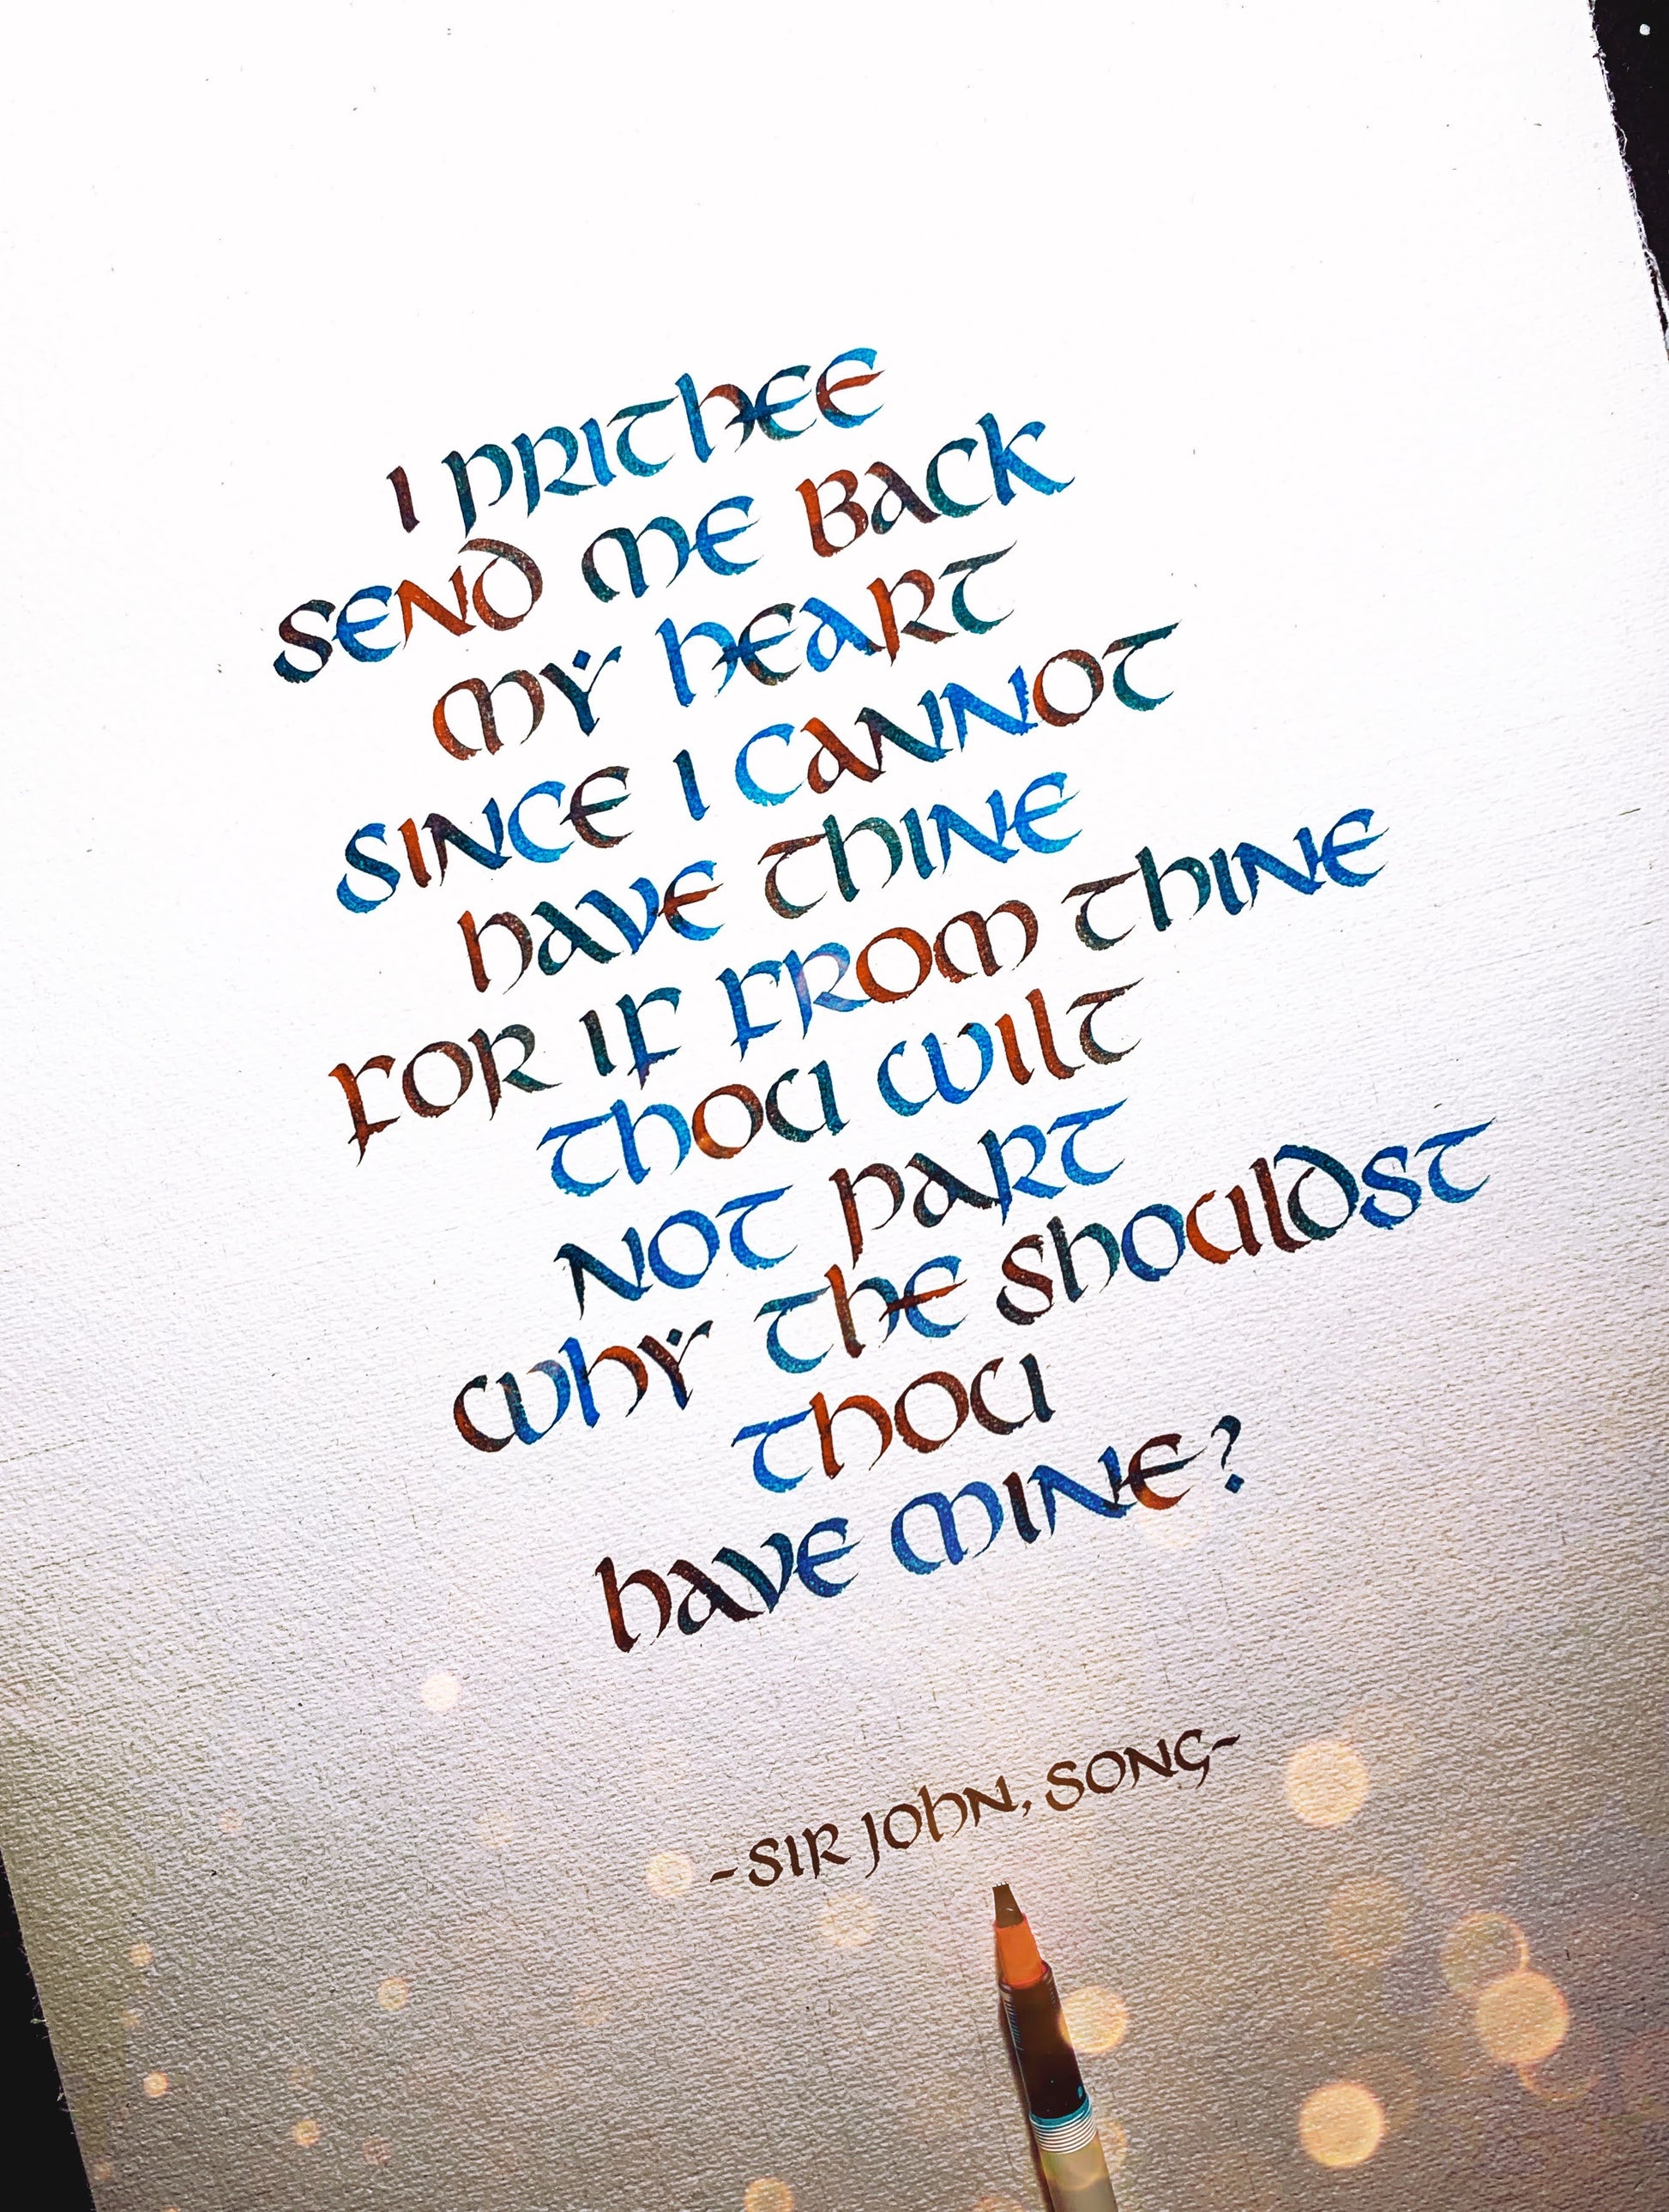 I PRITHEE
SEND ME BACK
MY HEART
SINCE I CANNOT
HAVE THINE
FOR IF FROM THINE
THOU WILT
NOT PART
WHY THE SHOULDST
THOU
HAVE MINE?
-SIR JOHN, SONG-